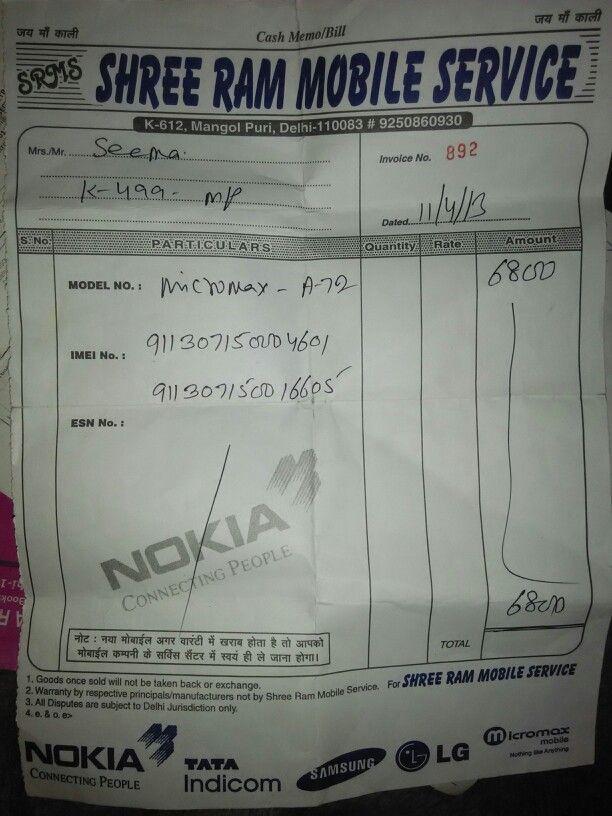 जय माँ काली
Cash Memo/Bill
जय माँ काली
SRMS
SHREE RAM MOBILE SERVICE
K-612, Mangol Puri, Delhi-110083 # 9250860930
Mrs./Mr. Seema.
Invoice No. 892
K-499- MP
Dated 11/4/13
S. No. PARTICULARS Quantity Rate Amount
MODEL NO. : Micromax - A-72 6800
IMEI No. : 911307150004601
911307150016605
ESN No. :
NOKIA
CONNECTING PEOPLE
6800
नोट : नया मोबाईल अगर वारंटी में खराब होता है तो आपको
मोबाईल कम्पनी के सर्विस सैंटर में स्वयं ही ले जाना होगा।
TOTAL
1. Goods once sold will not be taken back or exchange.
2. Warranty by respective principals/manufacturers not by Shree Ram Mobile Service.
For SHREE RAM MOBILE SERVICE
3. All Disputes are subject to Delhi Jurisdiction only.
4. e. & o. e>
NOKIA
CONNECTING PEOPLE
TATA
Indicom
SAMSUNG
LG
Micromax
mobile
Nothing like Anything